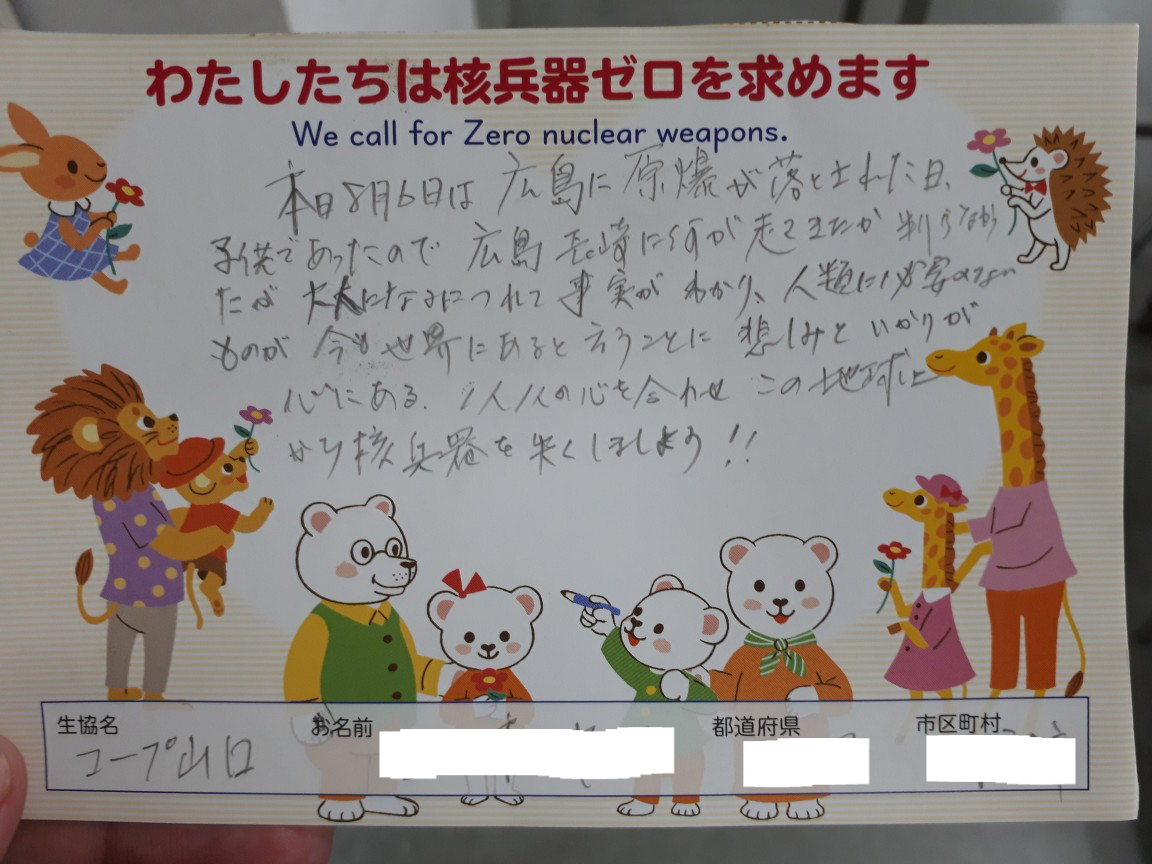 わたしたちは核兵器ゼロを求めます
We call for Zero nuclear weapons.
本日8月6日は 広島に 原爆が 落とされた日、
子供であったので 広島 長崎に何が 起てきたか 判らなかっ
たが 大人になるにつれて 事実が わかり、人類に必要のない
ものが 今も世界にあると言うことに 悲しみと いかりが
心にある。1人1人の心を合わせ この地球上
から核兵器を失くしましよう!!
生協名
コープ山口
お名前
都道府県
市区町村